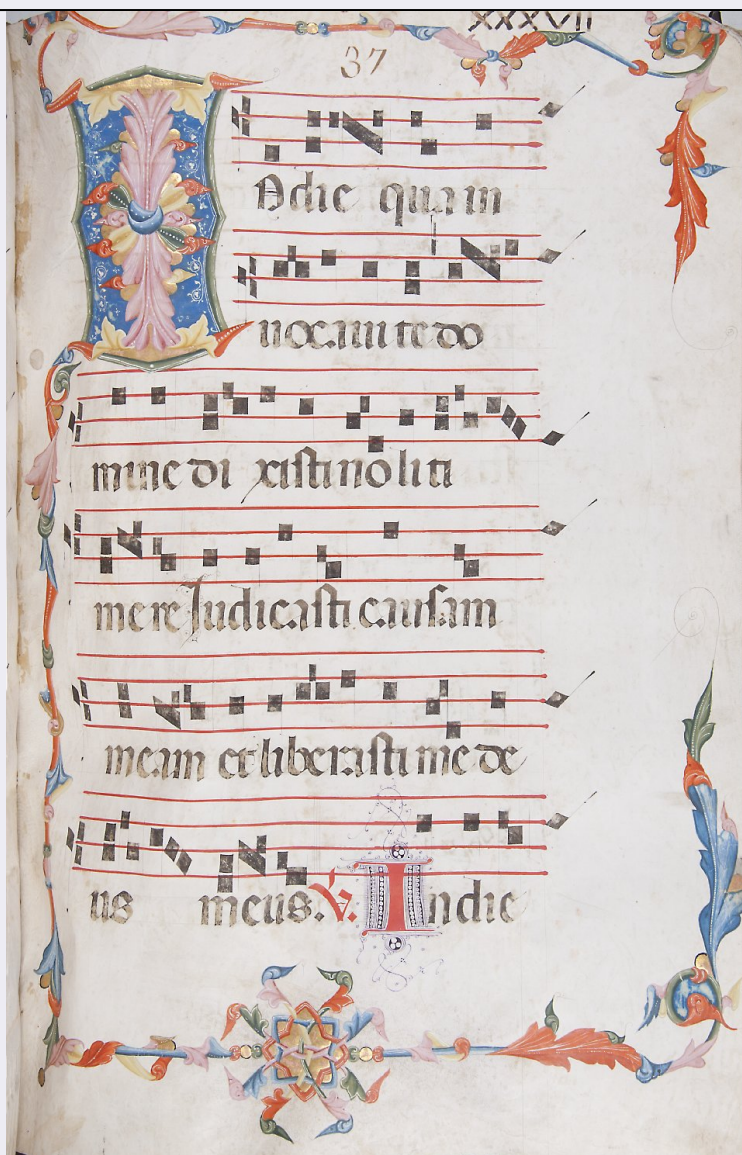 XXXVII
37
IN die quam
uocaui te do
mine di xisti noli ti
mere Judicasti causam
meam et liberasti me de
us meus. V. Indie